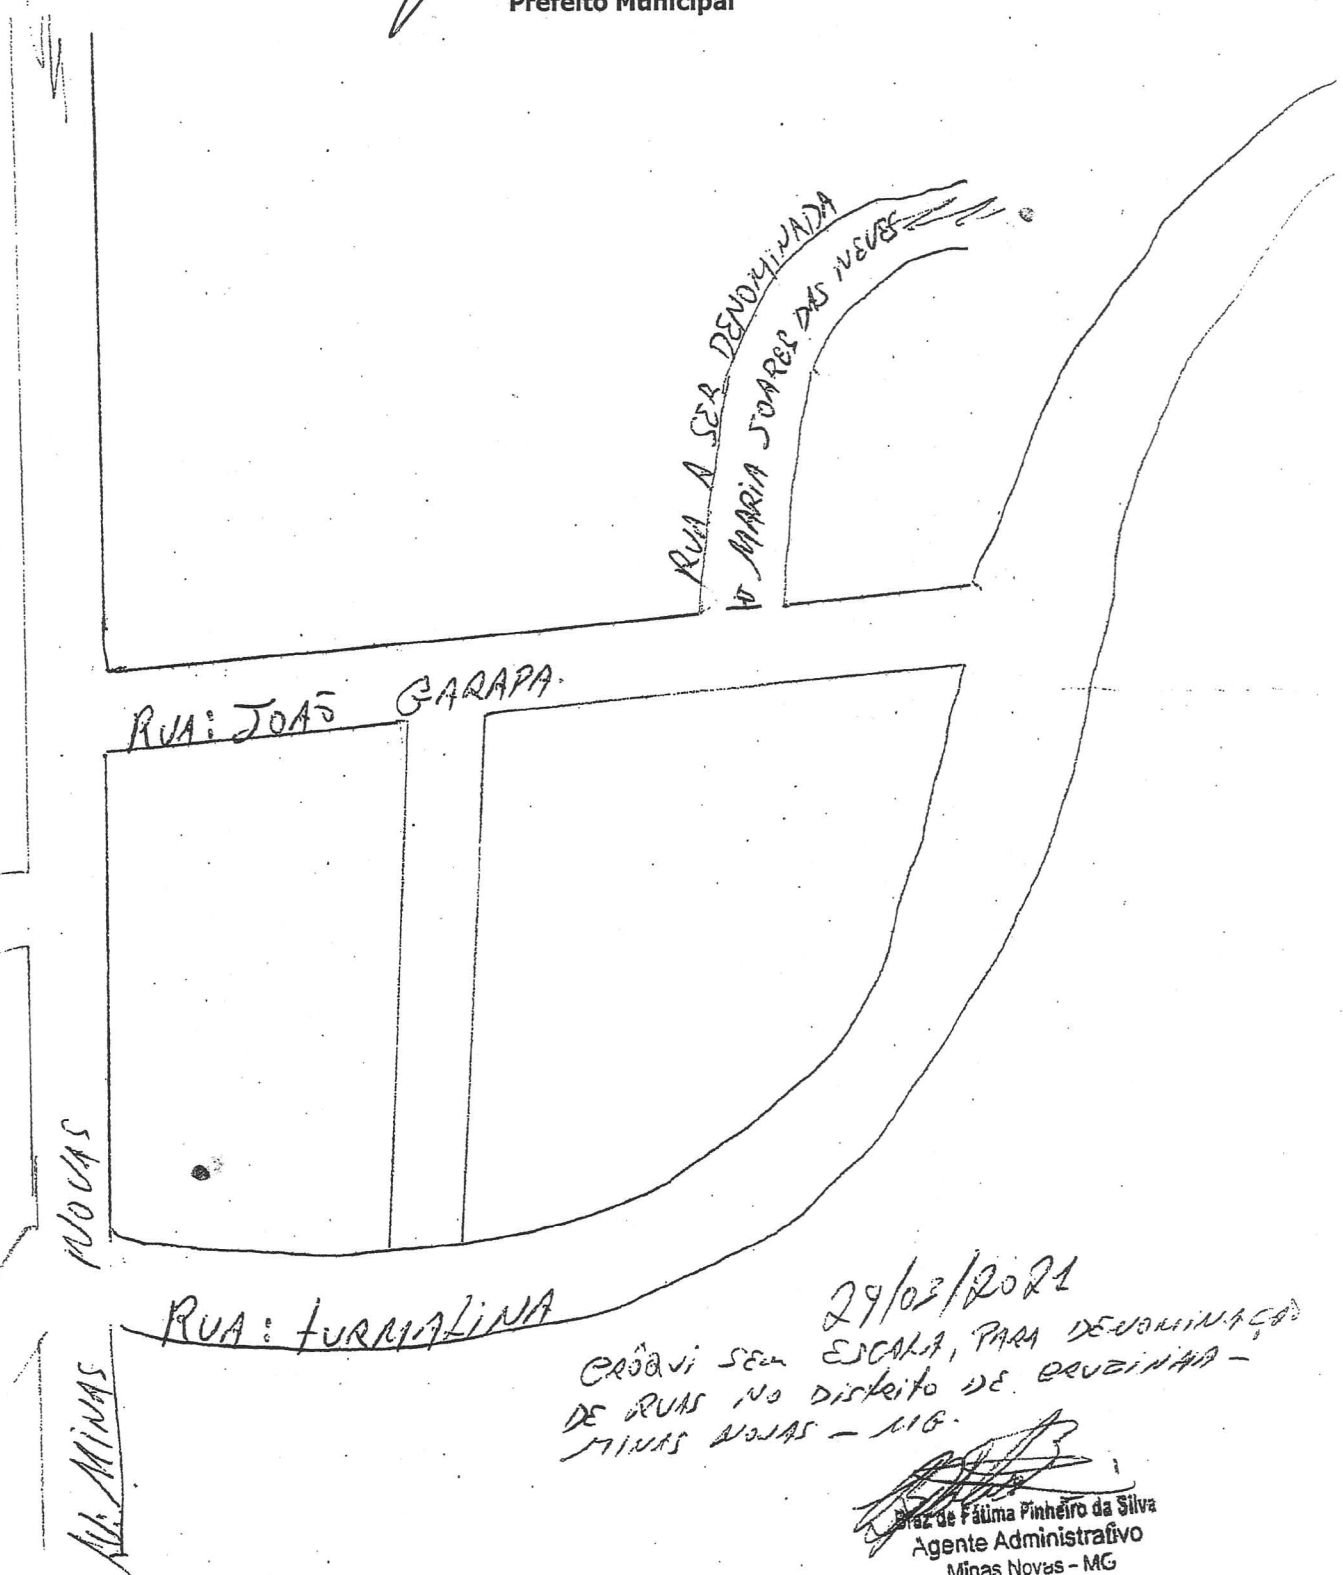 Prefeito Municipal
RUA A SER DENOMINADA
MARIA SOARES DAS NEVES
RUA: JOAÕ GARAPA.
AV: MINAS NOVAS
RUA: TURMALINA
29/03/2021
CRÔQUI SEM ESCALA, PARA DENOMINAÇÃO
DE RUAS NO DISTRITO DE CRUZINHA -
MINAS NOVAS - MG.
Braz de Fátima Pinheiro da Silva
Agente Administrativo
Minas Novas - MG